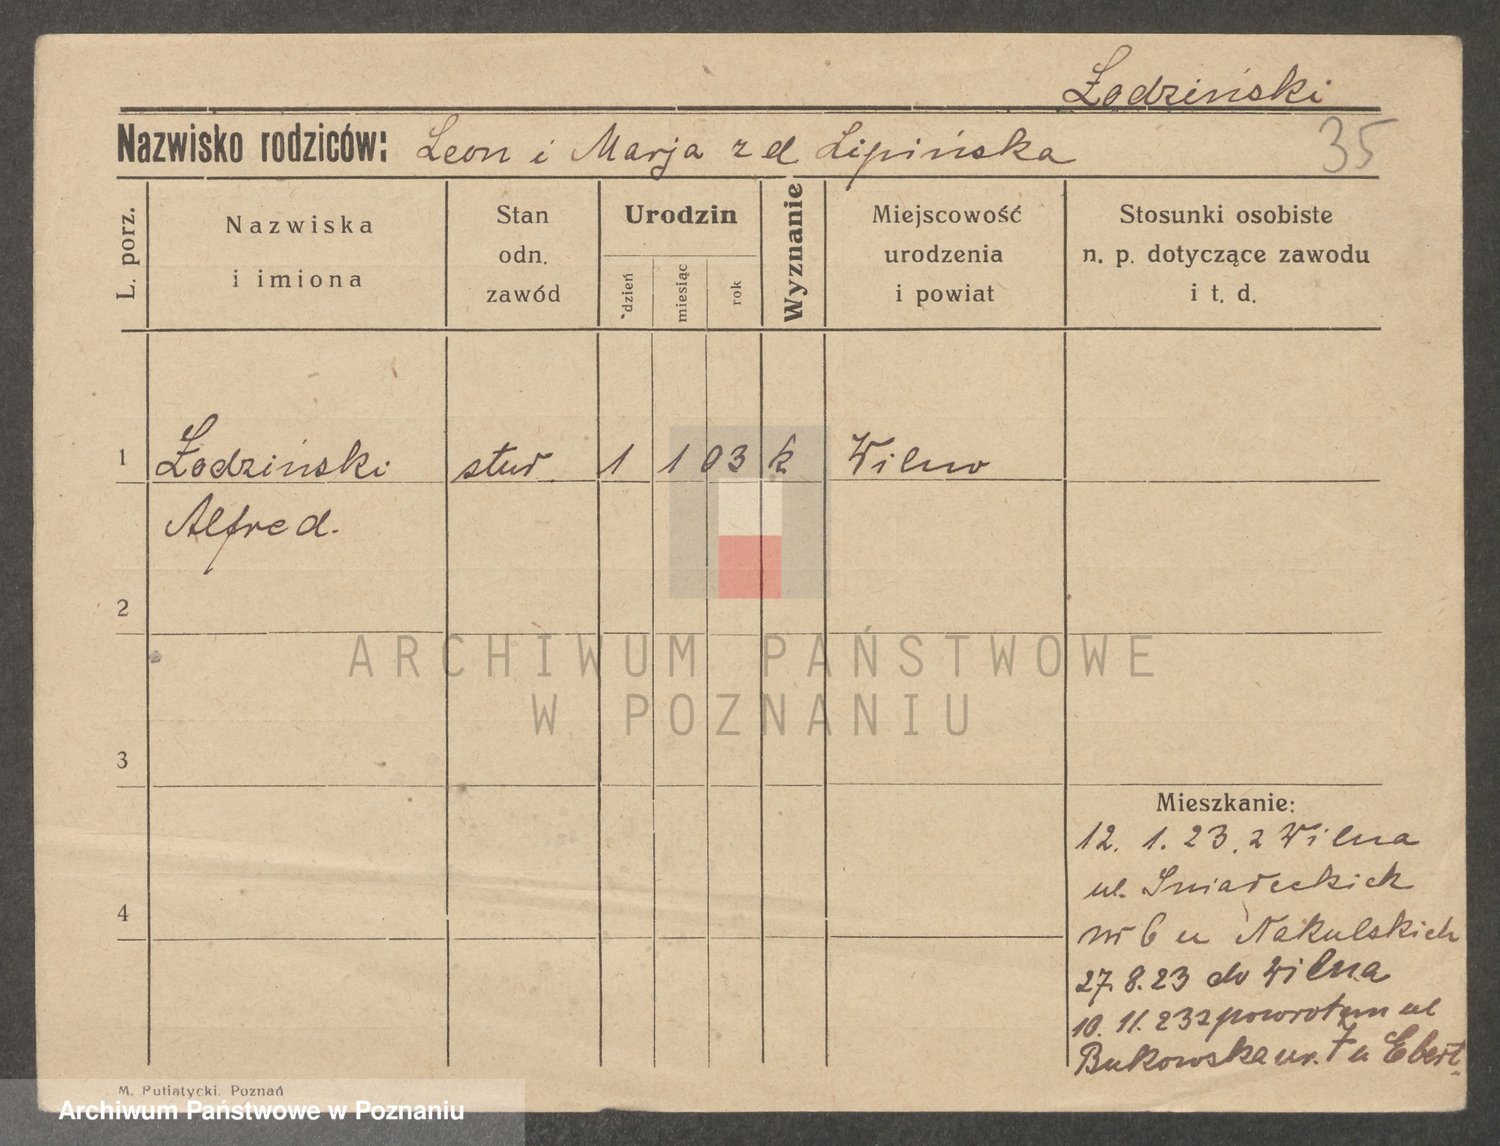 Łodziński
Nazwisko rodziców: Leon i Marja z d Lipińska
35
L. porz.
Nazwiska
i imiona
Stan
odn.
zawód
Urodzin
dzień
miesiąc
rok
Wyznanie
Miejscowość
urodzenia
i powiat
Stosunki osobiste
n. p. dotyczące zawodu
i t. d.
1 Łodziński stud. 1 1 03 k Wilno
Alfred.
2
ARCHIWUM PAŃSTWOWE
W POZNANIU
3
Mieszkanie:
12. 1. 23. z Wilna
ul. Śniadeckich
4
nr 6 u Nakulskich
27. 8. 23 do Wilna
10. 11. 23 z powrotem ul
Bukowska nr. 7 u Ebert.
M. Putiatycki. Poznań
Archiwum Państwowe w Poznaniu